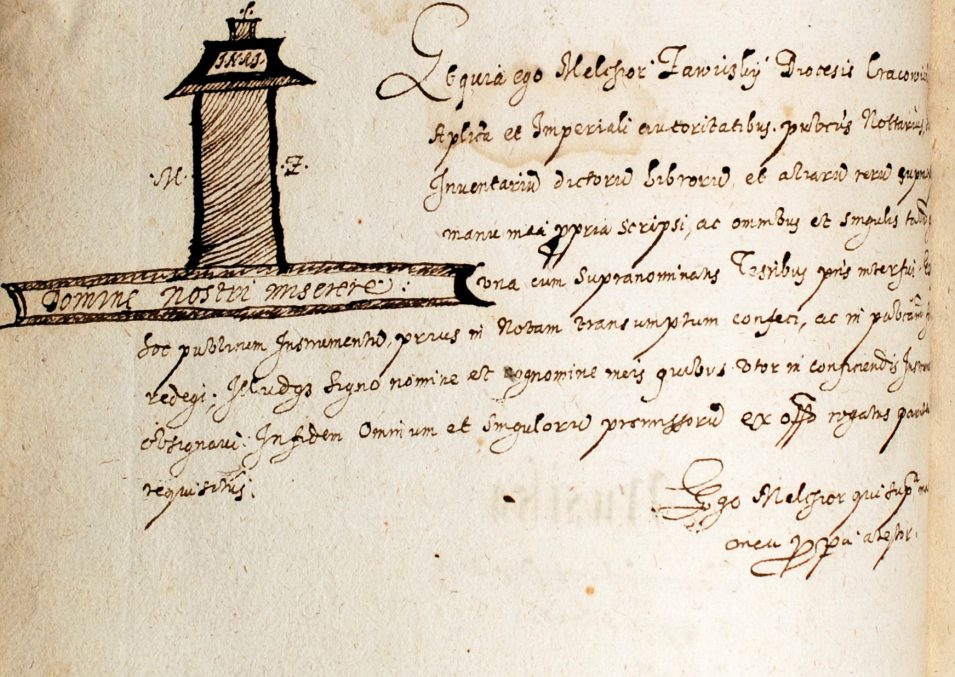 INRI
·M· ·Z·
Domine nostri miserere:
Et quia ego Melchior Zawisly Diocesis
Aplica et Imperiali autoritatibus publicus Nottarius
Inventariu dictoru libroru, et aliaru reru
manu mea ppria scripsi, ac omnibus et singulis
una cum supranominatis Testibus pns interfui
hoc publicum Instrumentu, prius in Notam transumptum confeci, ac in
redegi; Illudqz signo nomine et cognomine meis quibus utor in conficiendis
obsignavi: In fidem Omnium et singuloru premissoru ex offo rogatus
requisitus:
Ego Melchior qui supra
mea ppa atestor.